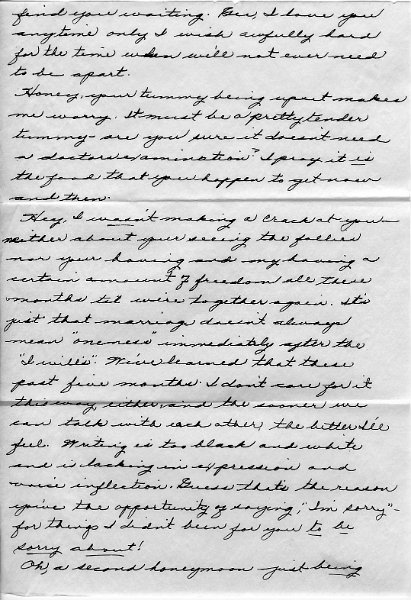 find you waiting. Gee, I love you
anytime only I wish awfully hard
for the time when we'll not ever need
to be apart.
Honey, your tummy being upset makes
me worry. It must be a pretty tender
tummy - are you sure it doesn't need
a doctor's examination? I pray it is
the food that you happen to get now
and then.
Hey, I wasn't making a crack at you -
neither about your seeing the follies
nor your having and my having a
certain amount of freedom all these
months til we're together again. It's
just that marriage doesn't always
mean "oneness" immediately after the
"I will's". We've learned that these
past five months. I don't care for it
this way either, and the sooner we
can talk with each other, the better I'll
feel. Writing is too black and white
and is lacking in expression and
voice inflection. Guess that's the reason
you've the opportunity of saying, "I'm sorry" -
for things I didn't been for you to be
sorry about!
Oh, a second honeymoon - just being